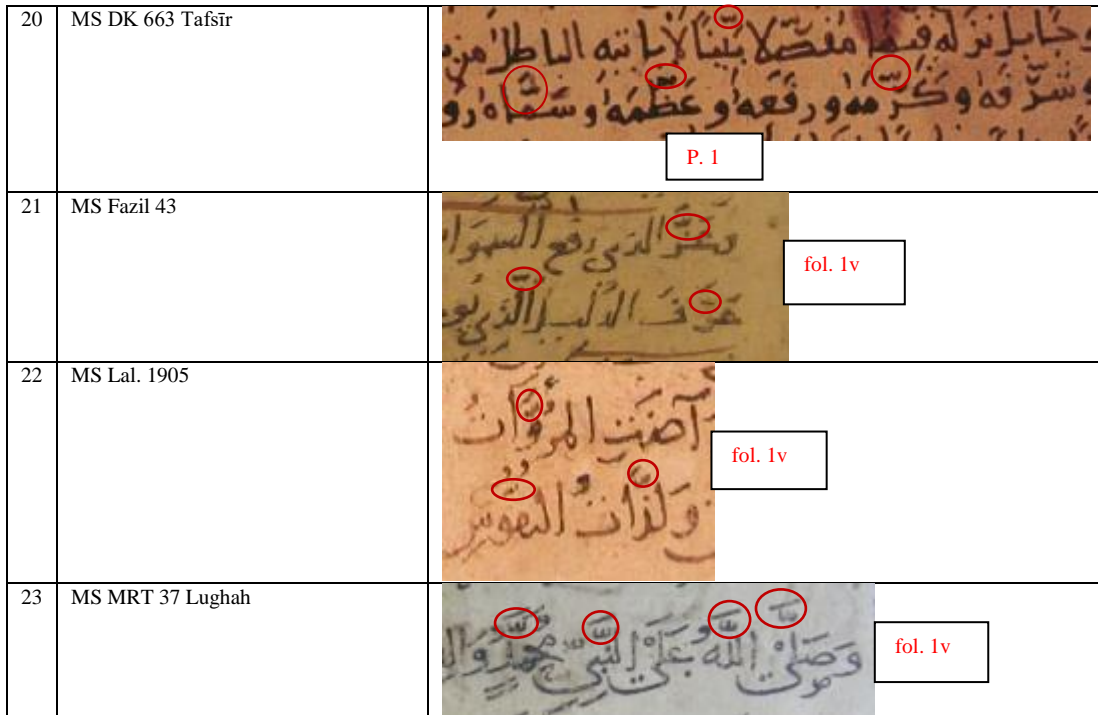 20 MS DK 663 Tafsīr
نزله مفصّلا بيّنا لا ياتيه الباطل من
وشرّفه وكرّمه ورفعه وعظّمه وسمّاه
P. 1
21 MS Fazil 43
الذي رفع السموا
الذي
fol. 1v
22 MS Lal. 1905
آضَتِ المرُوَّاتُ
وَلذَّات النفُوس
fol. 1v
23 MS MRT 37 Lughah
وَصَلَّى اللَّهُ عَلَى النَّبِيِّ مُحَمَّدٍ
fol. 1v